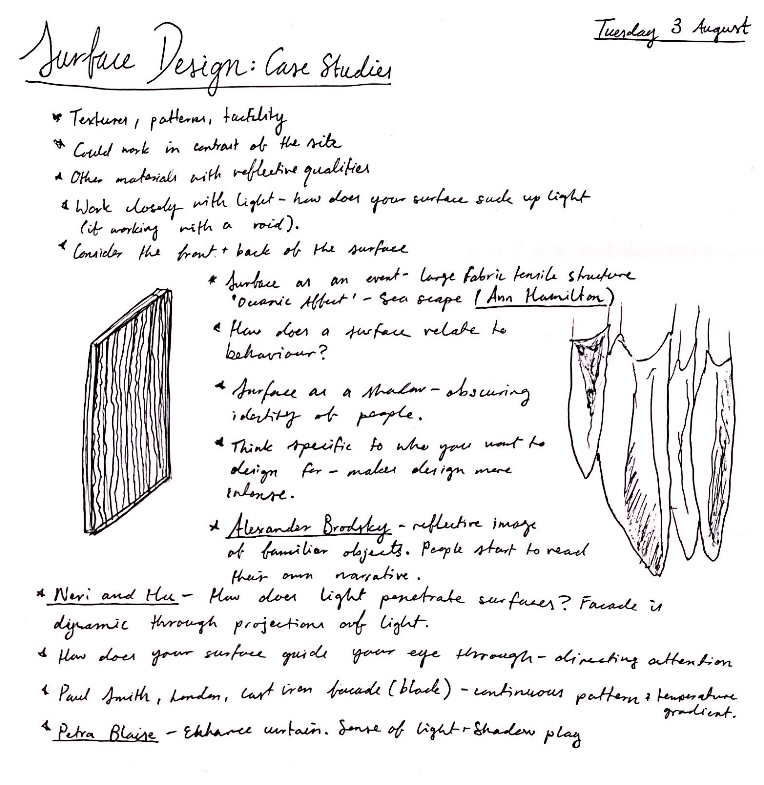 Tuesday 3 August
Surface Design: Case Studies
* Textures, patterns, tactility
* Could work in contrast of the site
* Other materials with reflective qualities
* Work closely with light - how does your surface suck up light
(if working with a void).
* Consider the front + back of the surface
* Surface as an event - large fabric tensile structure
'Oceanic Affect' - Sea scape (Ann Hamilton)
* How does a surface relate to
behaviour?
* Surface as a shadow - obscuring
identity of people.
* Think specific to who you want to
design for - makes design more
intense.
* Alexander Brodsky - reflective image
of familiar objects. People start to read
their own narrative.
* Neri and Hu - How does light penetrate surfaces? Facade is
dynamic through projections of light.
* How does your surface guide your eye through - directing attention
* Paul Smith, London, cast iron facade (black) - continuous pattern + temperature
gradient.
* Petra Blaise - Enhance curtain. Sense of light + shadow play